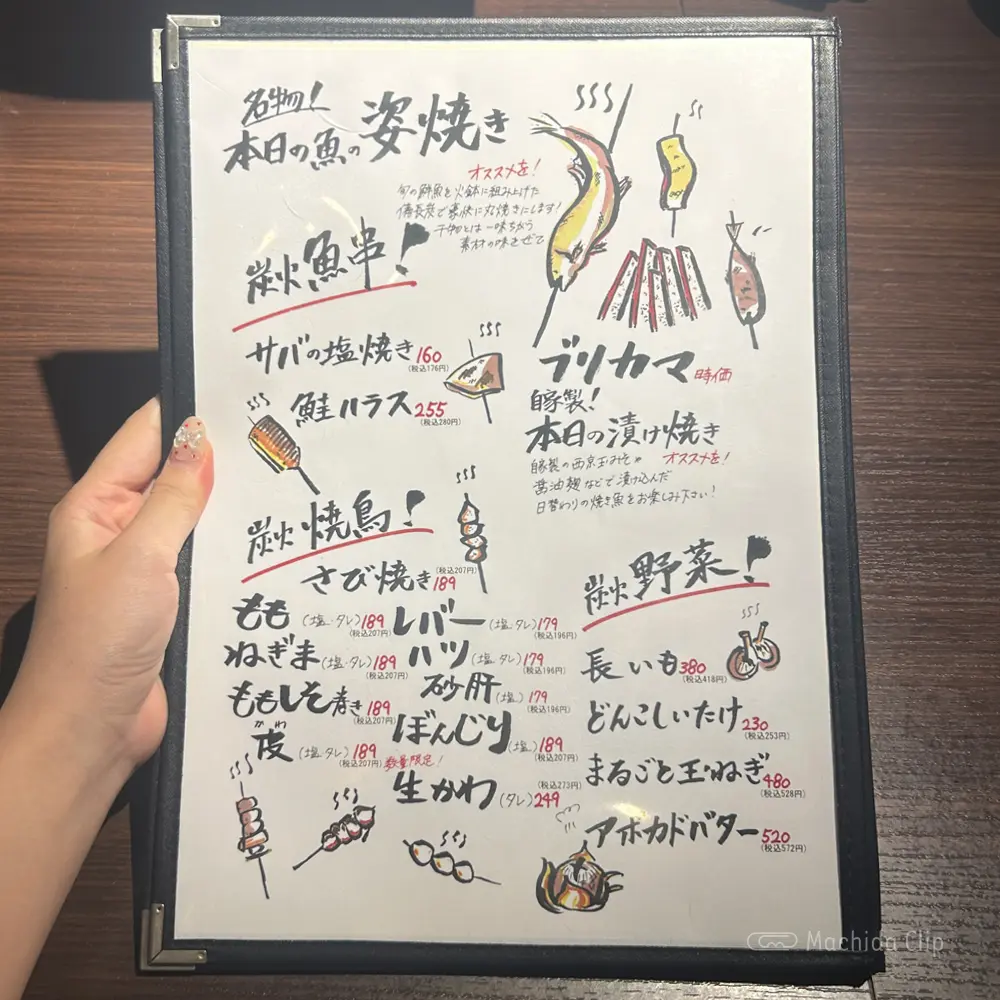 名物!
本日の魚の姿焼き
オススメを!
旬の鮮魚を火鉢に組み上げた
備長炭で豪快に丸焼きにします!
干物とは一味ちがう
素材の味をぜひ
炭火魚串!
サバの塩焼き160
(税込176円)
鮭ハラス255
(税込280円)
ブリカマ時価
自家製!
本日の漬け焼き
オススメを!
自家製の西京玉みそや
醤油麹などで漬け込んだ
日替わりの焼き魚をお楽しみ下さい!
炭火焼鳥!
さび焼き189
(税込207円)
もも(塩・タレ)189
(税込207円)
ねぎま(塩・タレ)189
(税込207円)
ももしそ巻き189
(税込207円)
かわ
皮(塩・タレ)189
(税込207円)
レバー(塩・タレ)179
(税込196円)
ハツ(塩・タレ)179
(税込196円)
砂肝(塩)179
(税込196円)
ぼんじり(塩)189
(税込207円)
数量限定!
生かわ(タレ)249
(税込273円)
炭火野菜!
長いも380
(税込418円)
どんこしいたけ230
(税込253円)
まるごと玉ねぎ480
(税込528円)
アボカドバター520
(税込572円)
Machida Clip